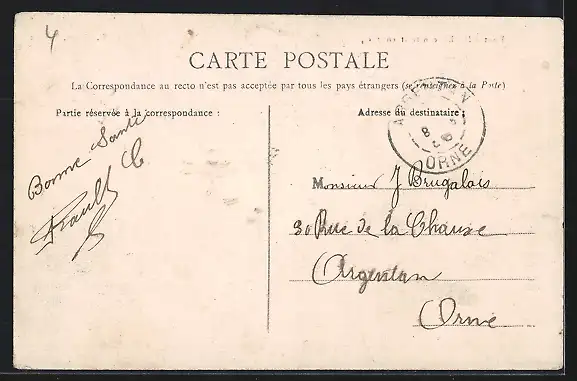 4
CARTE POSTALE
La Correspondance au recto n'est pas acceptée par tous les pays étrangers (se renseigner à la Poste)
Partie réservée à la correspondance :
Adresse du destinataire :
ORNE
Bonne Santé
Monsieur J Brugalais
30 Rue de la Chausse
Argentan
Orne